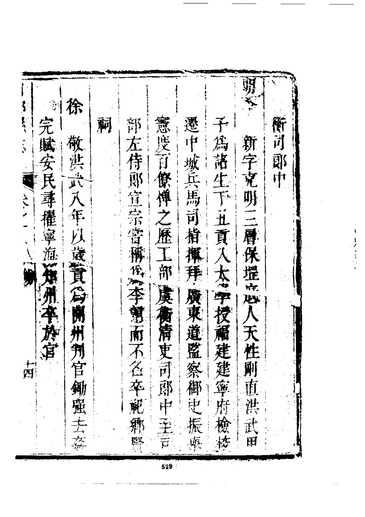 衡司郎中
明
新字克明三層保堤　人天性剛直洪武甲
子為諸生丁丑貢入太學授福建建寧府檢校
遷中城兵馬司指揮拜廣東道監察御史振肅
憲度百僚憚之歷工部虞衡清吏司郎中至工
部左侍郎宣宗嘗稱為李　而不名卒祀鄉賢
祠
徐　敬洪武八年以歲貢為開州判官鋤強去
完賦安民尋擢寧海　州卒於官
十四
529